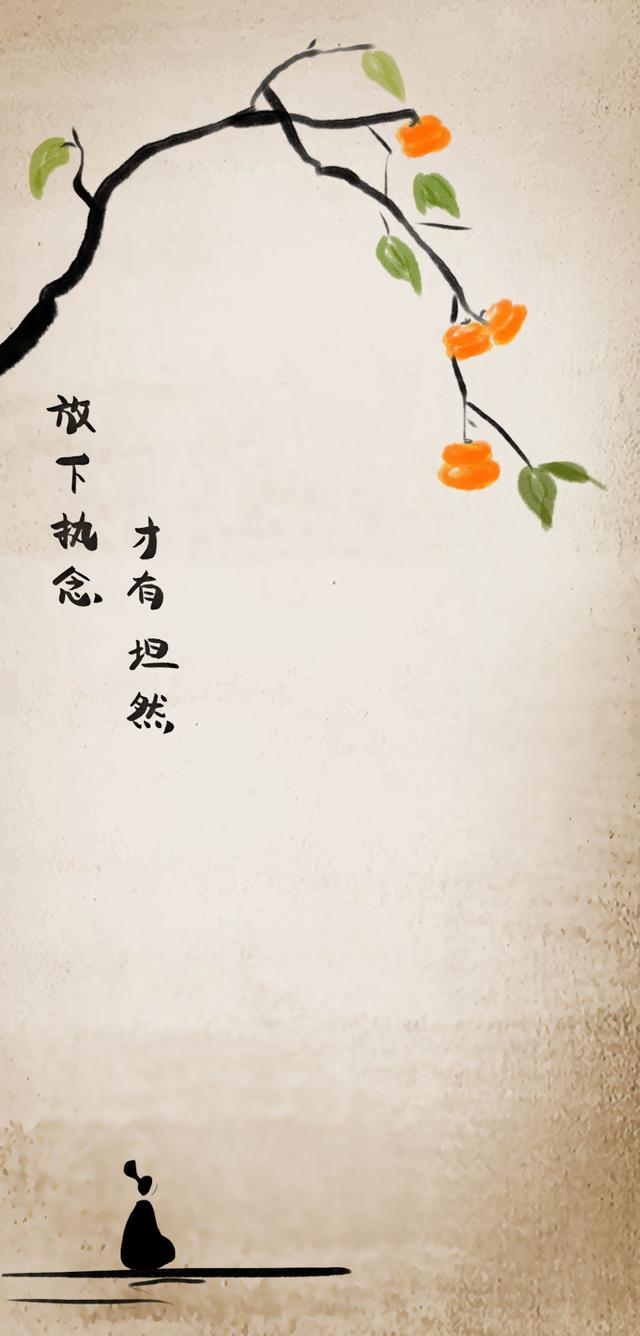 放下执念
才有坦然